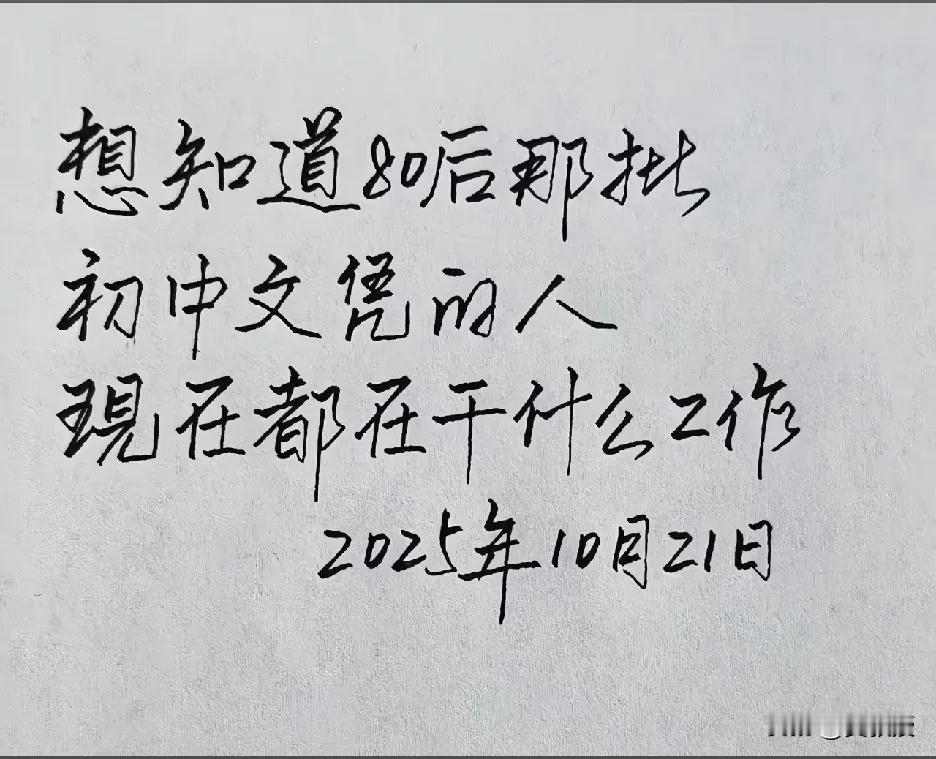 想知道80后那批
初中文凭的人
現在都在干什么工作
2025年10月21日